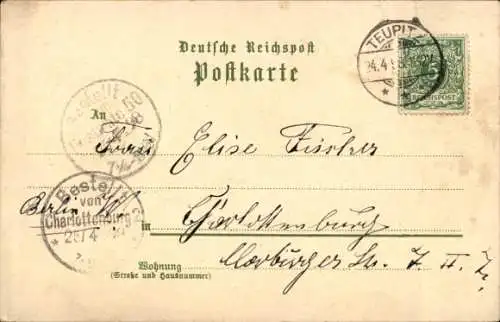 Deutsche Reichspost
Postkarte
TEUPITZ
An
Bestellt
Frau Elise Fischer
Bestellt
von
Charlottenburg 2
25/4
Berlin W.
in Charlottenburg
Marburger Str. 7 II
Wohnung
(Straße und Hausnummer)
REICHSPOST